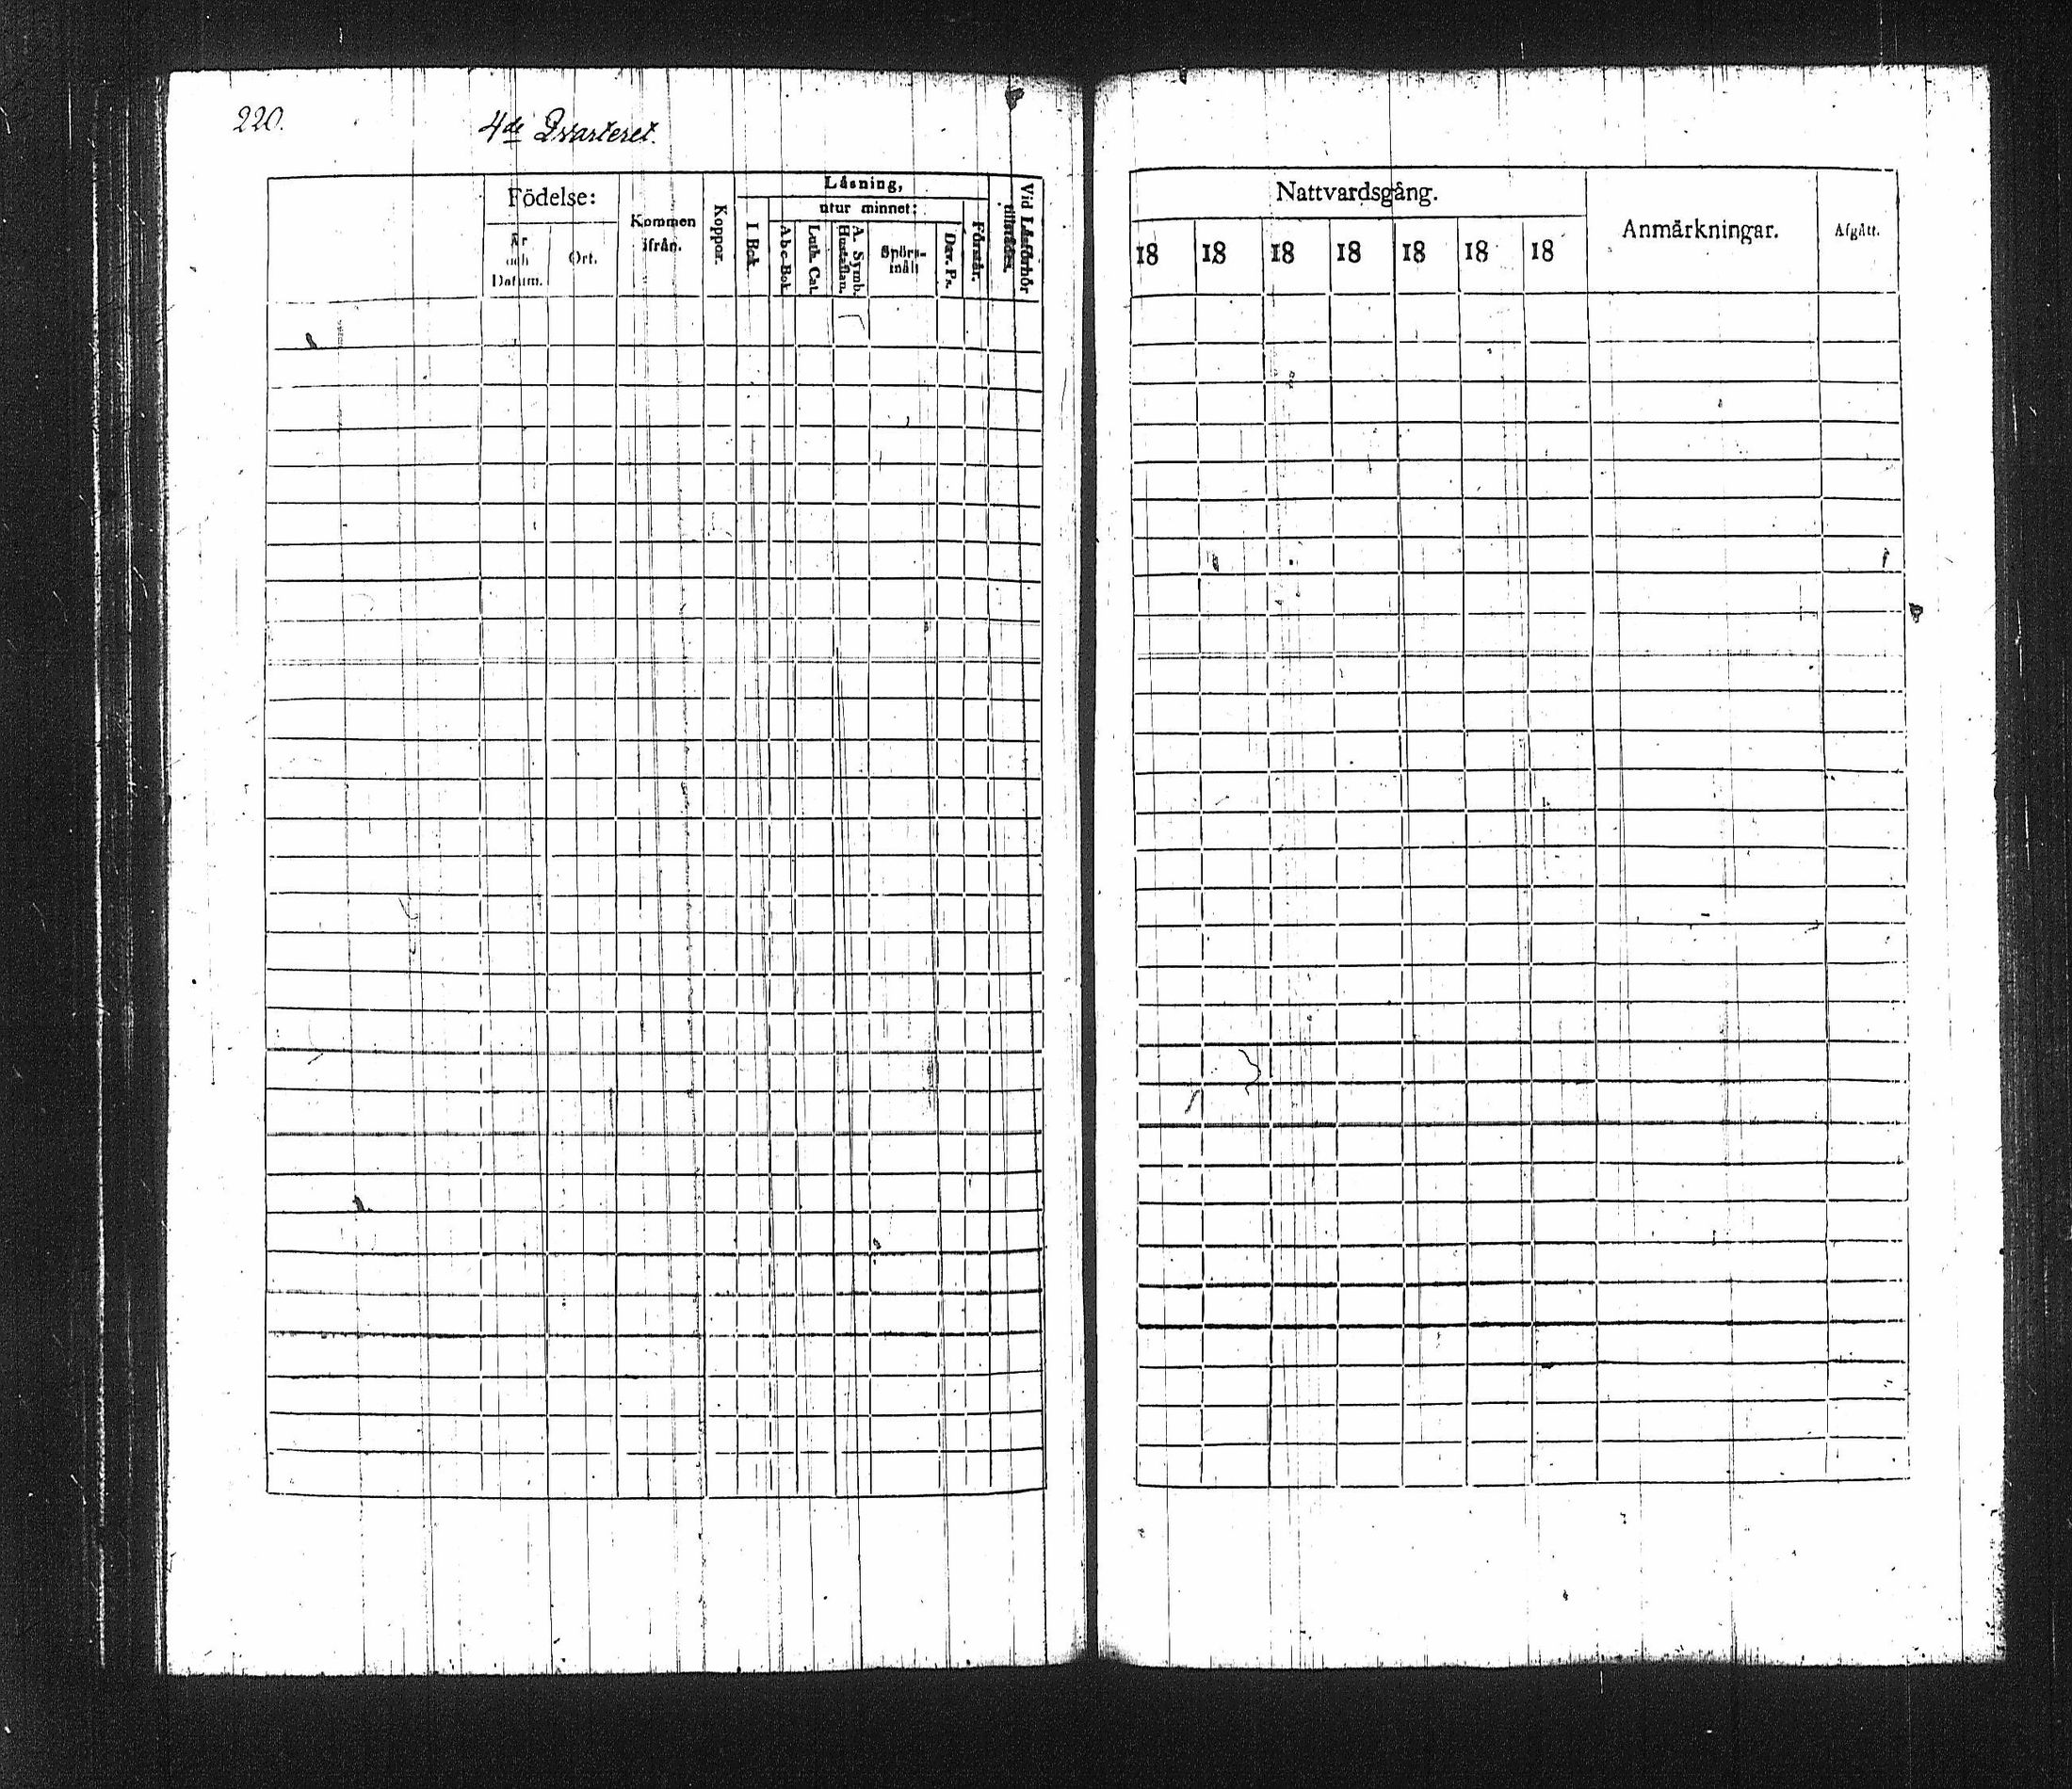 220.
4de Qvarteret.
Födelse:
År och Datum.
Ort.
Kommen ifrån.
Koppor.
Läsning,
I Bok.
utur minnet:
Abc-Bok.
Luth. Cat.
A. Symb. Hustaflan.
Spörs-mål:
Dav. Ps.
Förstår.
Vid Läsförhör tillstädes.
Nattvardsgång.
18 18 18 18 18 18 18
Anmärkningar.
Afgått.